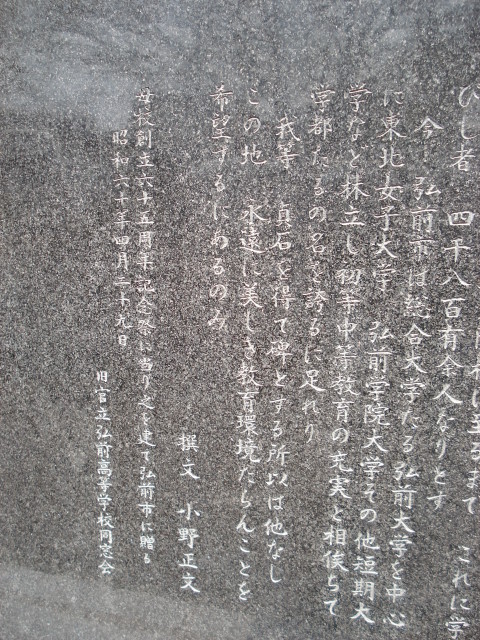 至るまで これに学
びし者 四千八百有余人なりとす
今 弘前市は総合大学たる弘前大学を中心
に東北女子大学 弘前学院大学その他短期大
学など林立し初等中等教育の充実と相俟ちて
学都たるの名を誇るに足れり
我等 貞石を得て碑とする所以は他なし
この地 永遠に美しき教育環境たらんことを
希望するにあるのみ
撰文 小野正文
母校創立六十五周年記念祭に当り之を建て弘前市に贈る
昭和六十年四月二十九日
旧官立弘前高等学校同窓会